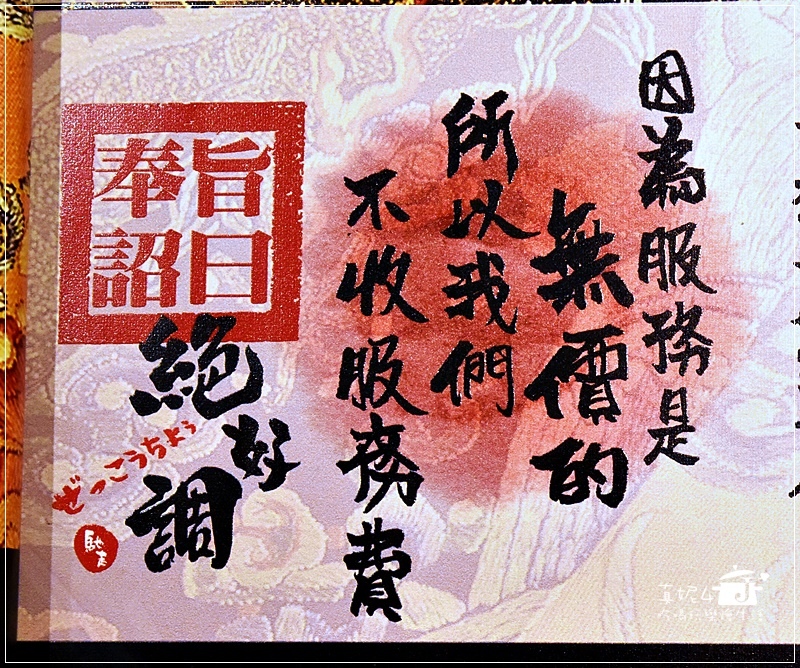 因為服務是
無價的
所以我們
不收服務費
奉旨
詔曰
絕好調
ぜっこうちょう
馳走